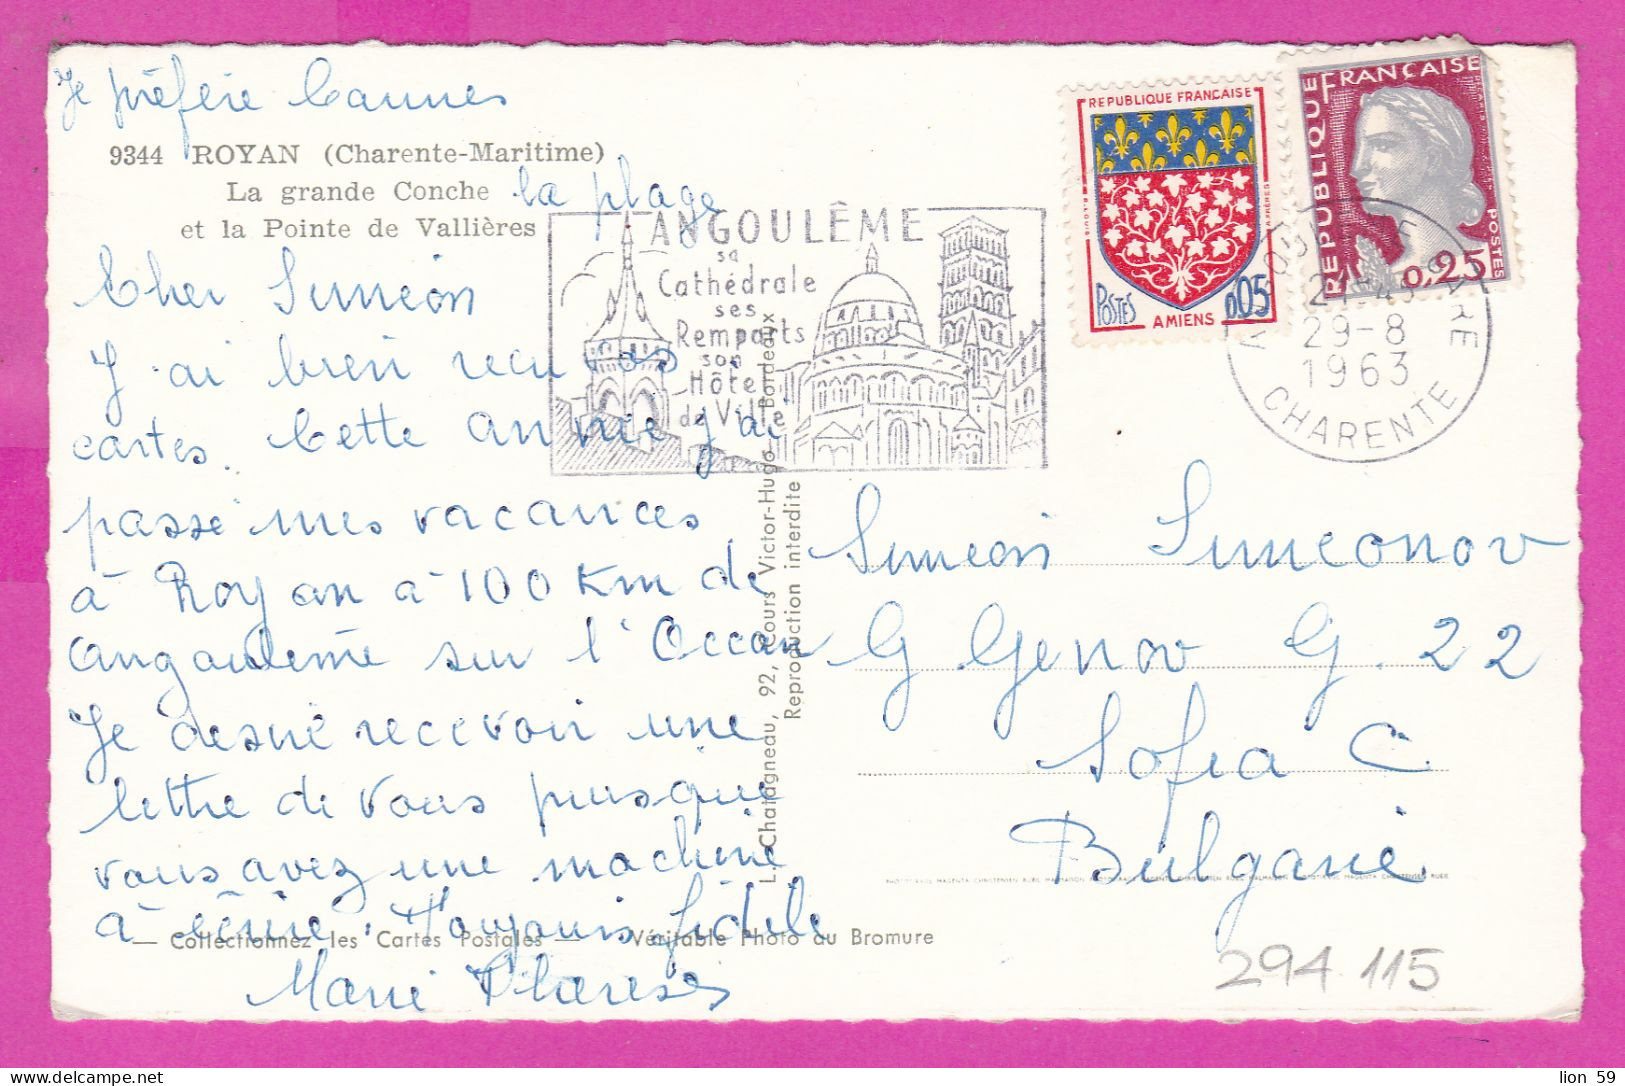 Je préfère Cannes
9344 ROYAN (Charente-Maritime)
La grande Conche
et la Pointe de Vallières
la plage
Cher Siméon
J'ai bien reçu vos
cartes. Cette année j'ai
passé mes vacances
à Royan à 100 Km de
Angoulême sur l'Océan
Je désire recevoir une
lettre de vous puisque
vous avez une machine
à écrire. Toujours fidèle
Marie Thérèse
— Collectionnez les Cartes Postales — Véritable Photo au Bromure
ANGOULÊME
sa
Cathédrale
ses
Remparts
son
Hôtel
de Ville
L. Chatagneau, 92, Cours Victor-Hugo - Bordeaux
Reproduction interdite
REPUBLIQUE FRANÇAISE
POSTES
0,05
AMIENS
REPUBLIQUE FRANÇAISE
POSTES
0,25
29-8
1963
CHARENTE
Siméon Simeonov
G Genov G. 22
Sofia C
Bulgarie
294 115
lion 59